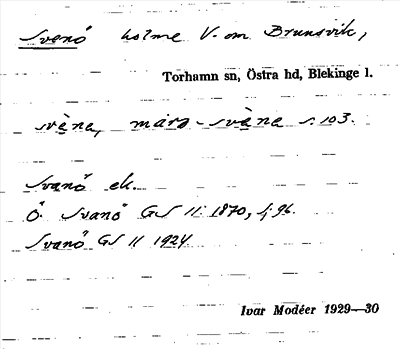 Svenö holme V. om Brunsvik,
Torhamn sn, Östra hd, Blekinge l.
svèna, märs-svèna s. 103.
Svanö ek.
Ö. Svanö GS 11 1870, bj 96.
Svanö GS 11 1924
Ivar Modéer 1929—30